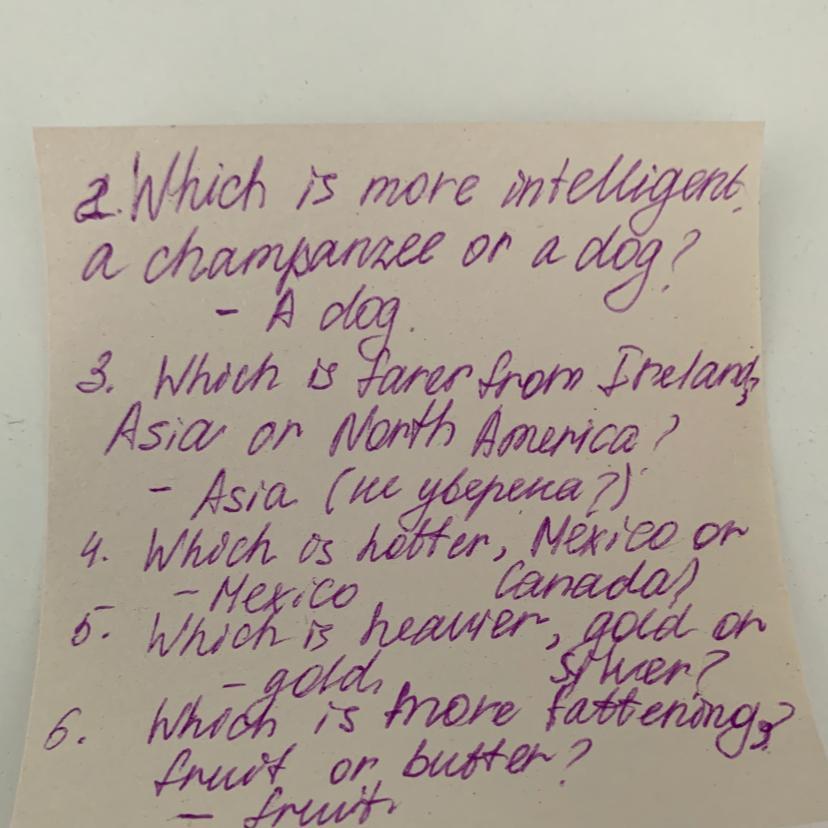 2. Which is more intelligent,
a champanzee or a dog?
- A dog.
3. Which is farer from Ireland,
Asia or North America?
- Asia (не уверена?)
4. Which is hotter, Mexico or
- Mexico Canada?
5. Which is heavier, gold or
- gold. silver?
6. Which is more fattening,?
fruit or butter?
- fruit.